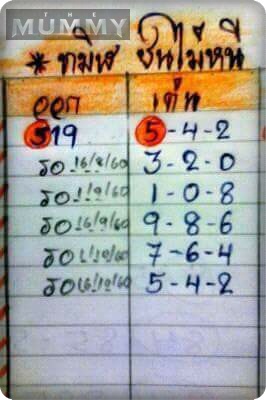 MUMMY
* ทมิฬ ชนไม่หนี
ออก เด่น
519 5-4-2
รอ 16/8/60 3-2-0
รอ 1/9/60 1-0-8
รอ 16/9/60 9-8-6
รอ 1/10/60 7-6-4
รอ 16/10/60 5-4-2